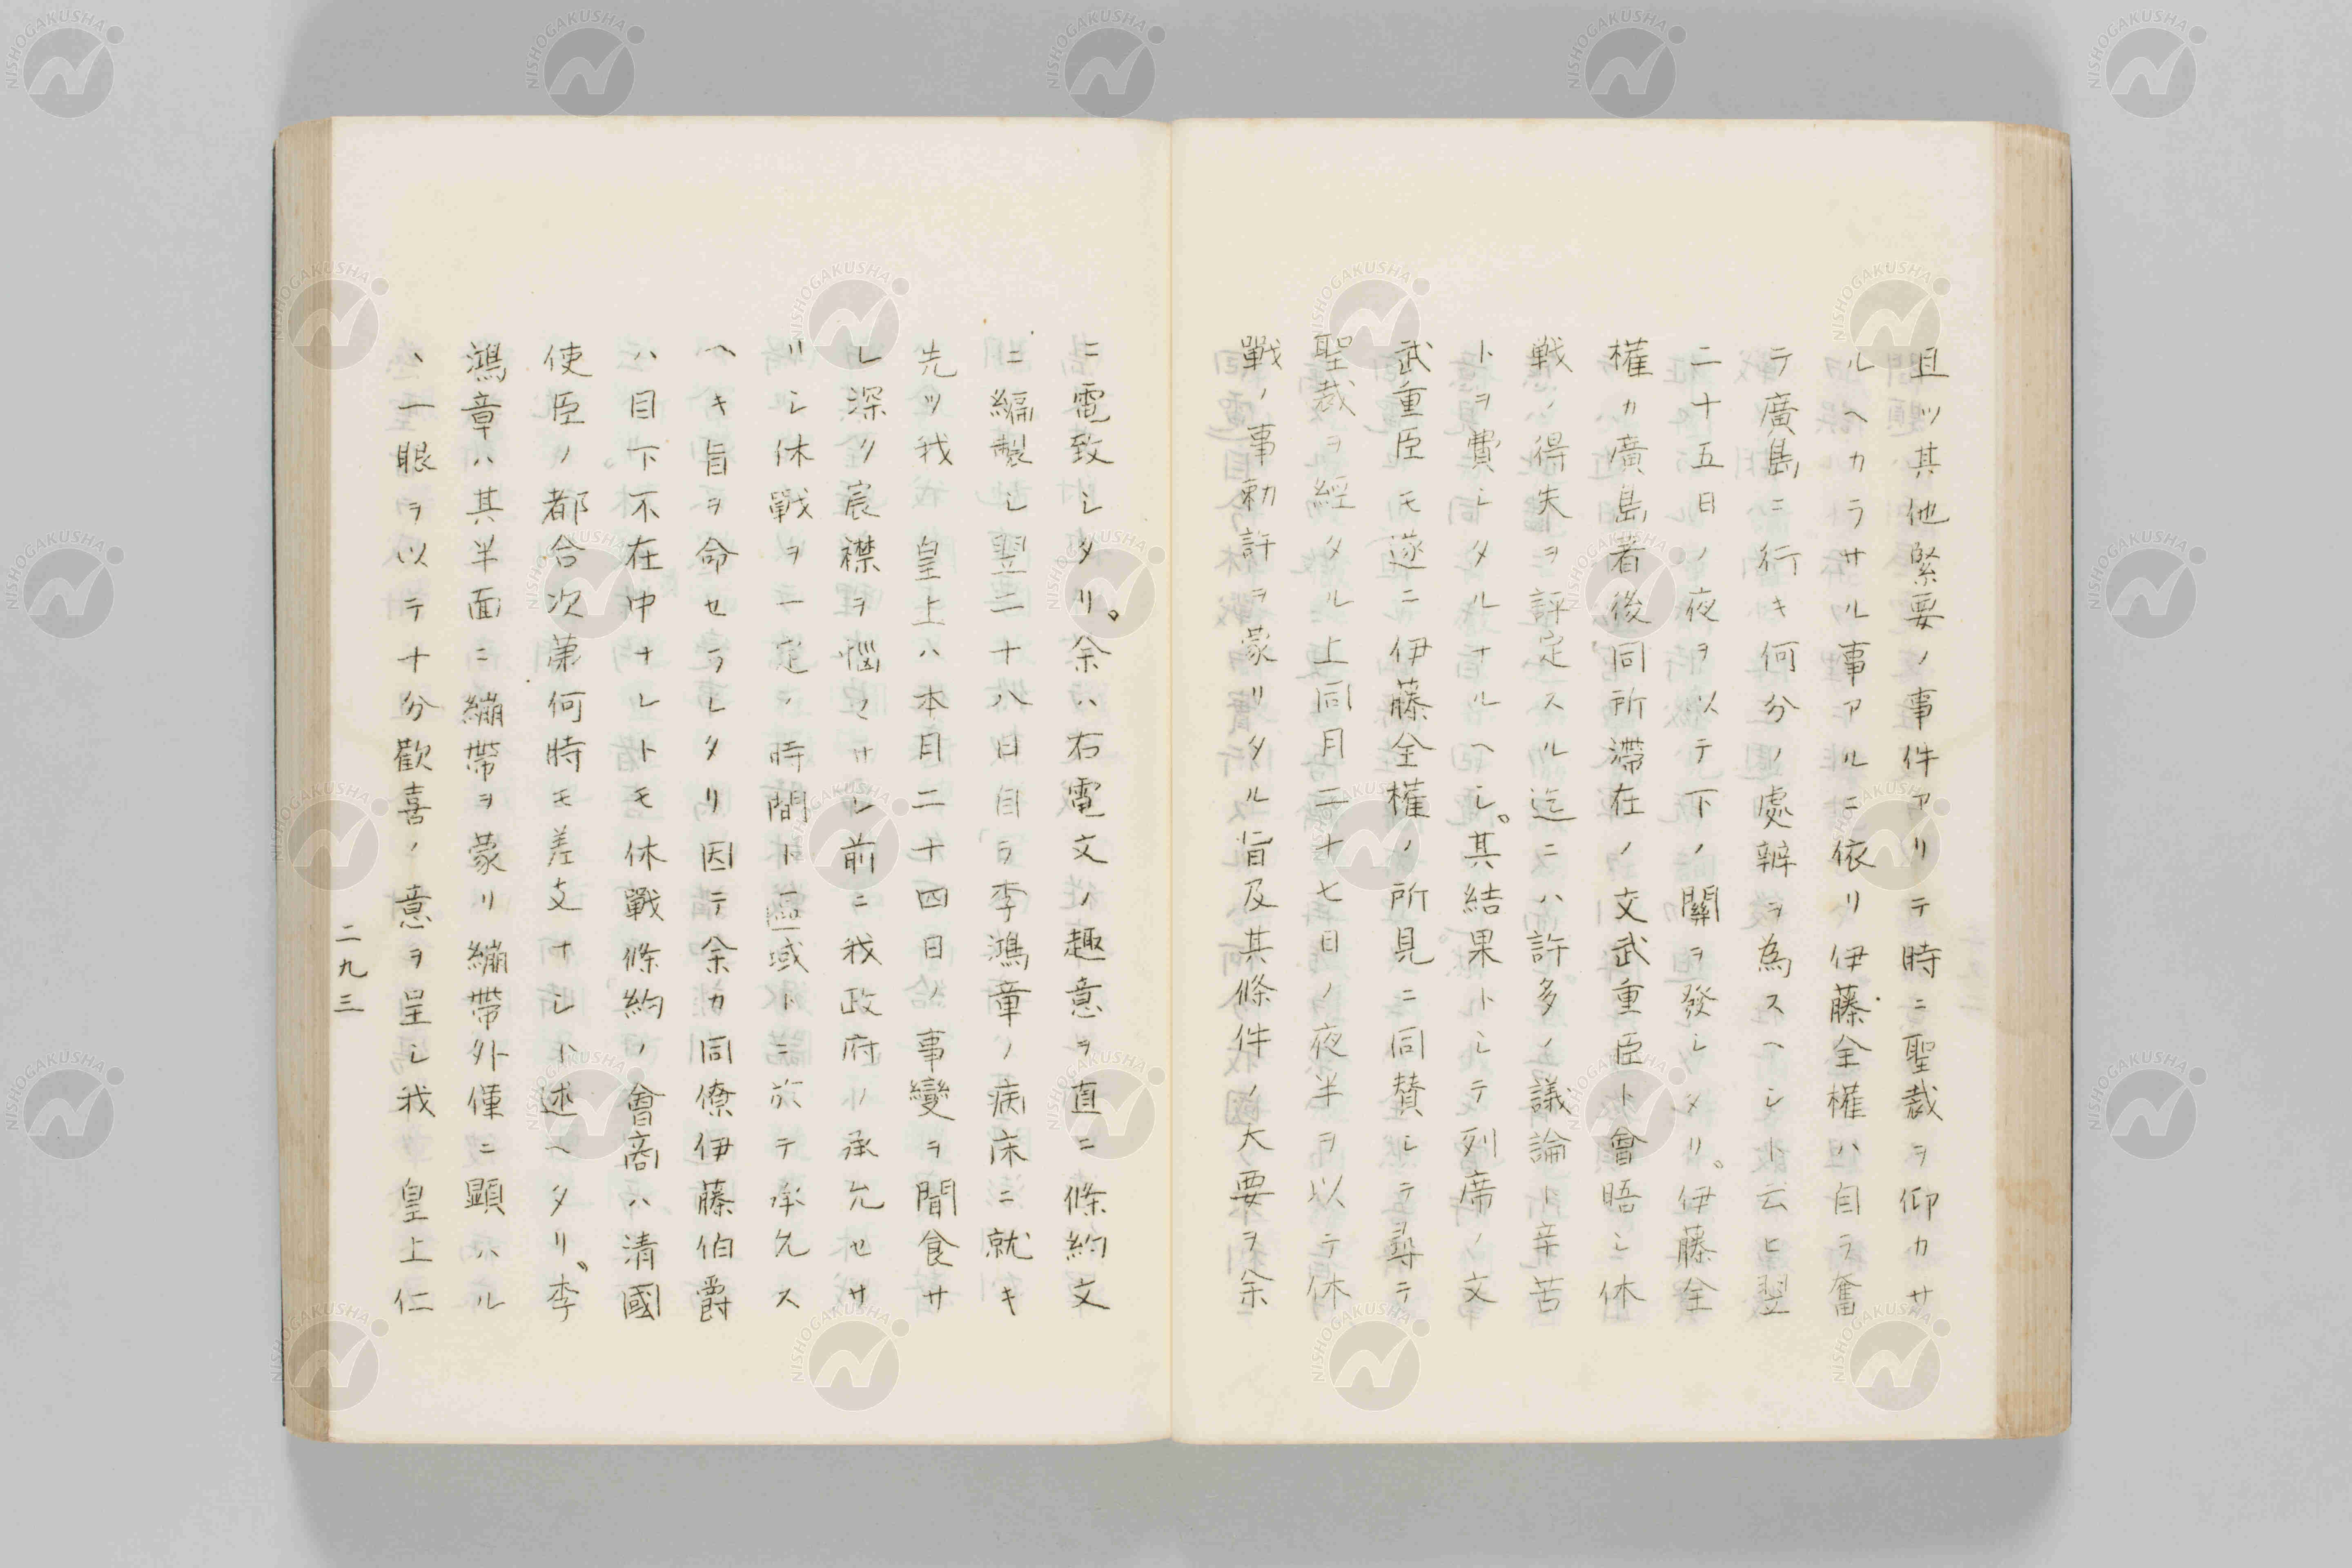 且ツ其他緊要ノ事件アリテ時ニ聖裁ヲ仰カサ
ルヘカラサル事アルニ依リ伊藤全權ハ自ラ奮
テ廣島ニ行キ何分ノ處辨ヲ為スヘシト云ヒ翌
二十五日ノ夜ヲ以テ下ノ關ヲ發シタリ。伊藤全
權カ廣島着後同所滞在ノ文武重臣ト會晤シ休
戦ノ得失ヲ評定スル迄ニハ許多ノ議論ト辛苦
トヲ費シタルナルヘシ。其結果トシテ列席ノ文
武重臣モ遂ニ伊藤全權ノ所見ニ同賛シテ尋テ
聖裁ヲ經タル上同月二十七日ノ夜半ヲ以テ休
戰ノ事勅許ヲ蒙リタル旨及其條件ノ大要ヲ余
ニ電致シタリ。余ハ右電文ノ趣意ヲ直ニ條約文
ニ編製シ翌二十八日自ラ李鴻章ノ病床ニ就キ
先ツ我皇上ハ本月二十四日ノ事變ヲ聞食サ
レ深ク宸襟ヲ惱マサレ前ニ我政府ノ承允セサ
リシ休戰ヲ一定ノ時間ト區域トニ於テ承允ス
ヘキ旨ヲ命セラレタリ因テ余カ同僚伊藤伯爵
ハ目下不在中ナレトモ休戰條約ノ會商ハ清國
使臣ノ都合次第何時モ差支ナシト述ヘタリ。李
鴻章ハ其半面ニ繃帶ヲ蒙リ繃帶外僅ニ顯ハル
ヽ一眼ヲ以テ十分歡喜ノ意ヲ呈シ我皇上仁
二九三
NISHOGAKUSHA